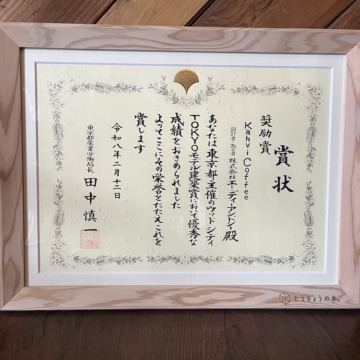 賞状
奨励賞
Kahvi Coffee
設計者・施工者 株式会社エヌ・ディ・アンド・アイ殿
あなたは東京都主催のウッドシティ
TOKYOモデル建築賞において優秀な
成績をおさめられました
よってここにその栄誉をたたえこれを
賞します
令和八年二月十二日
東京都産業労働局長
田中慎一
とうきょうの木